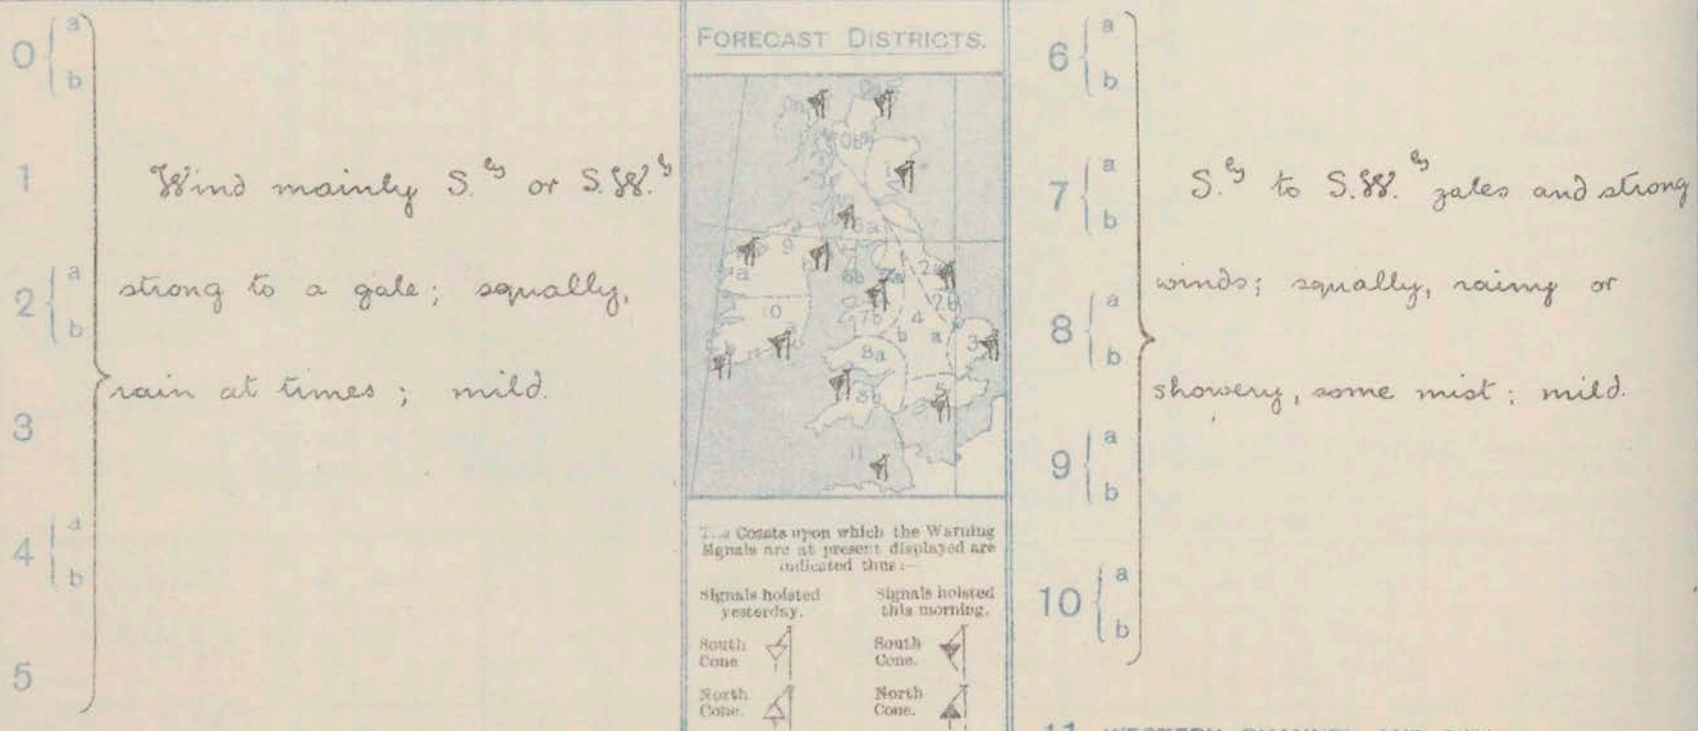 0 { a
b
1
2 { a
b
3
4 { a
b
5
Wind mainly S.ly or S.W.ly
strong to a gale; squally,
rain at times; mild.
FORECAST DISTRICTS.
The Coasts upon which the Warning
Signals are at present displayed are
indicated thus:—
Signals hoisted
yesterday.
Signals hoisted
this morning.
South
Cone
South
Cone.
North
Cone.
North
Cone.
6 { a
b
7 { a
b
8 { a
b
9 { a
b
10 { a
b
S.ly to S.W.ly gales and strong
winds; squally, rainy or
showery, some mist; mild.
11